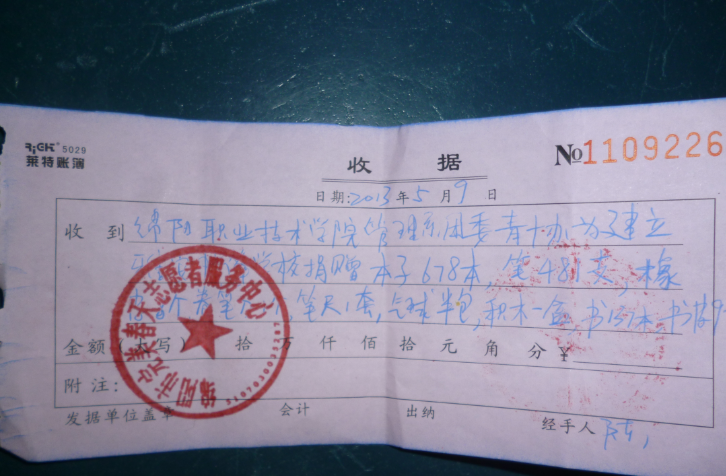 RiGH 5029
莱特账簿
收 据
№1109226
日期:2013年5月9日
收 到 绵阳职业技术学院管理系团委青 办为了建立
学校捐赠本子678本,笔481支,橡
笔 ,笔尺1套,气球半包,积木一盒,书151本,书
金额( 写) 拾 万 仟 佰 拾 元 角 分 ¥
附注:
发据单位盖章 会计 出纳 经手人
绵阳市完美春天志愿者服务中心